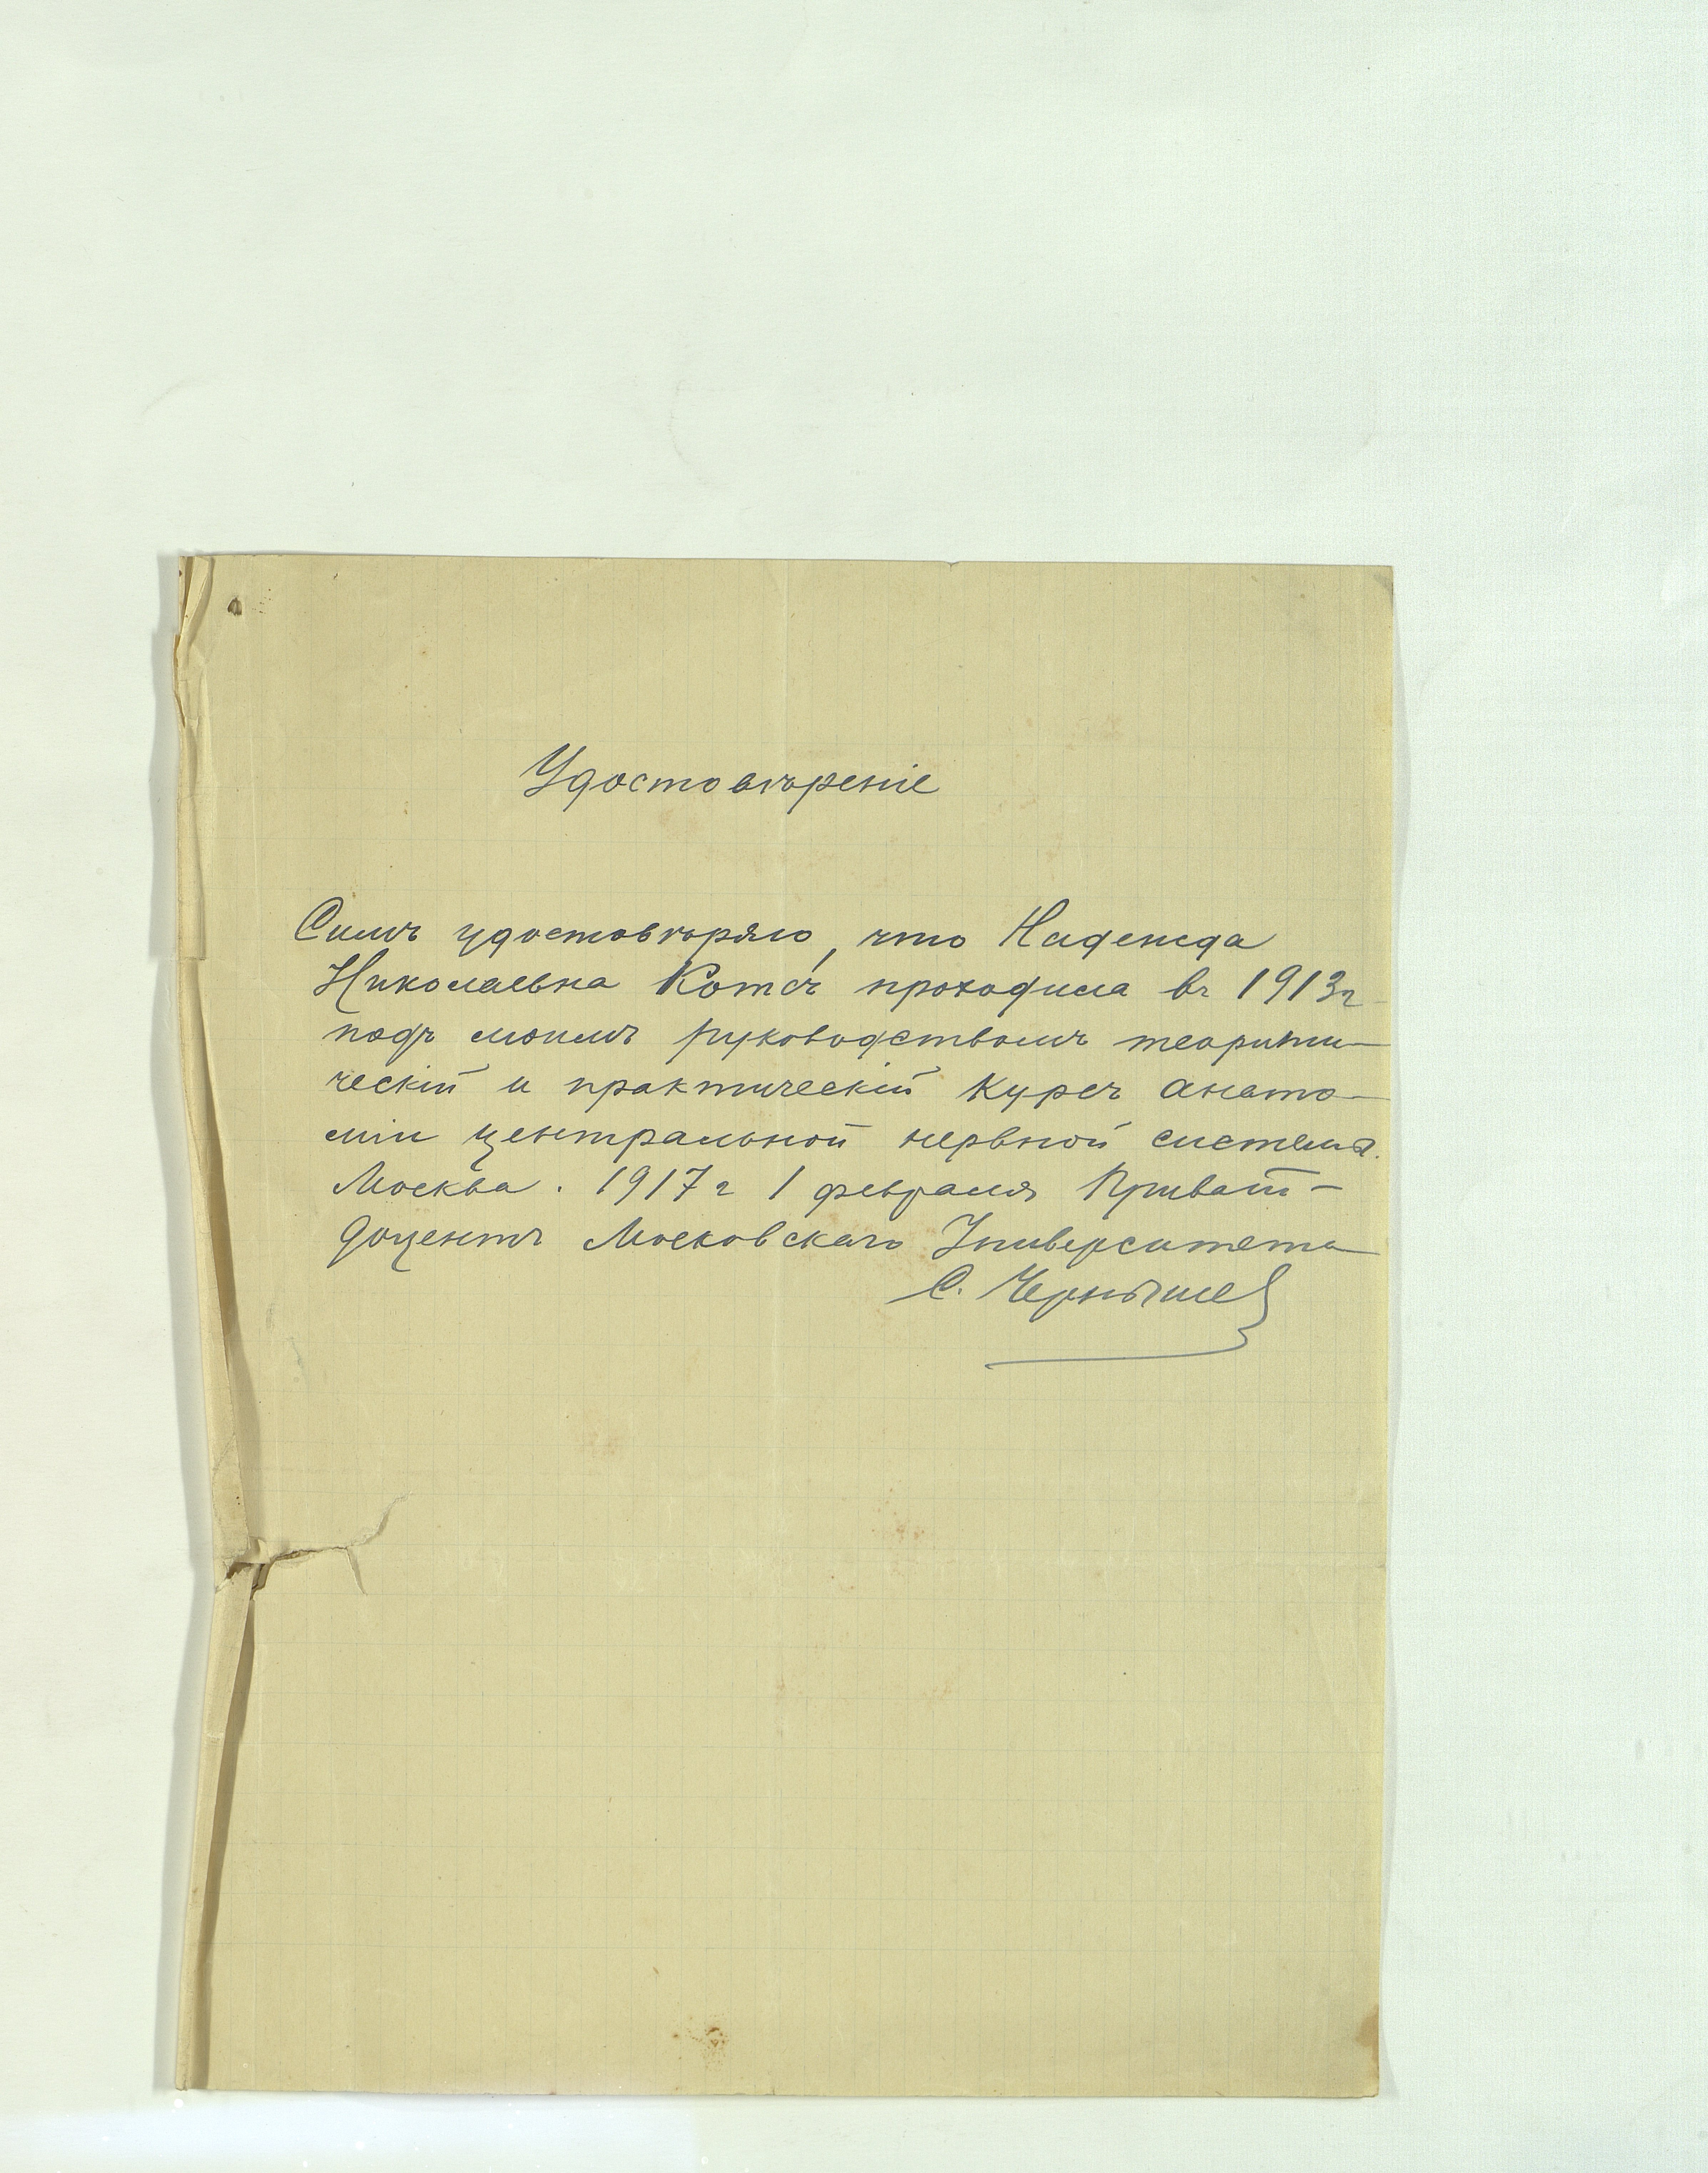 Удостовѣренiе
Симъ удостовѣряю, что Надежда
Николаевна Котсъ проходила въ 1913 г
подъ моимъ руководствомъ теорити-
ческiй и практическiй курсъ анато-
мiи центральной нервной системы.
Москва. 1917 г 1 февраля Приват-
доцентъ Московскаго Университета
С. Чернышев